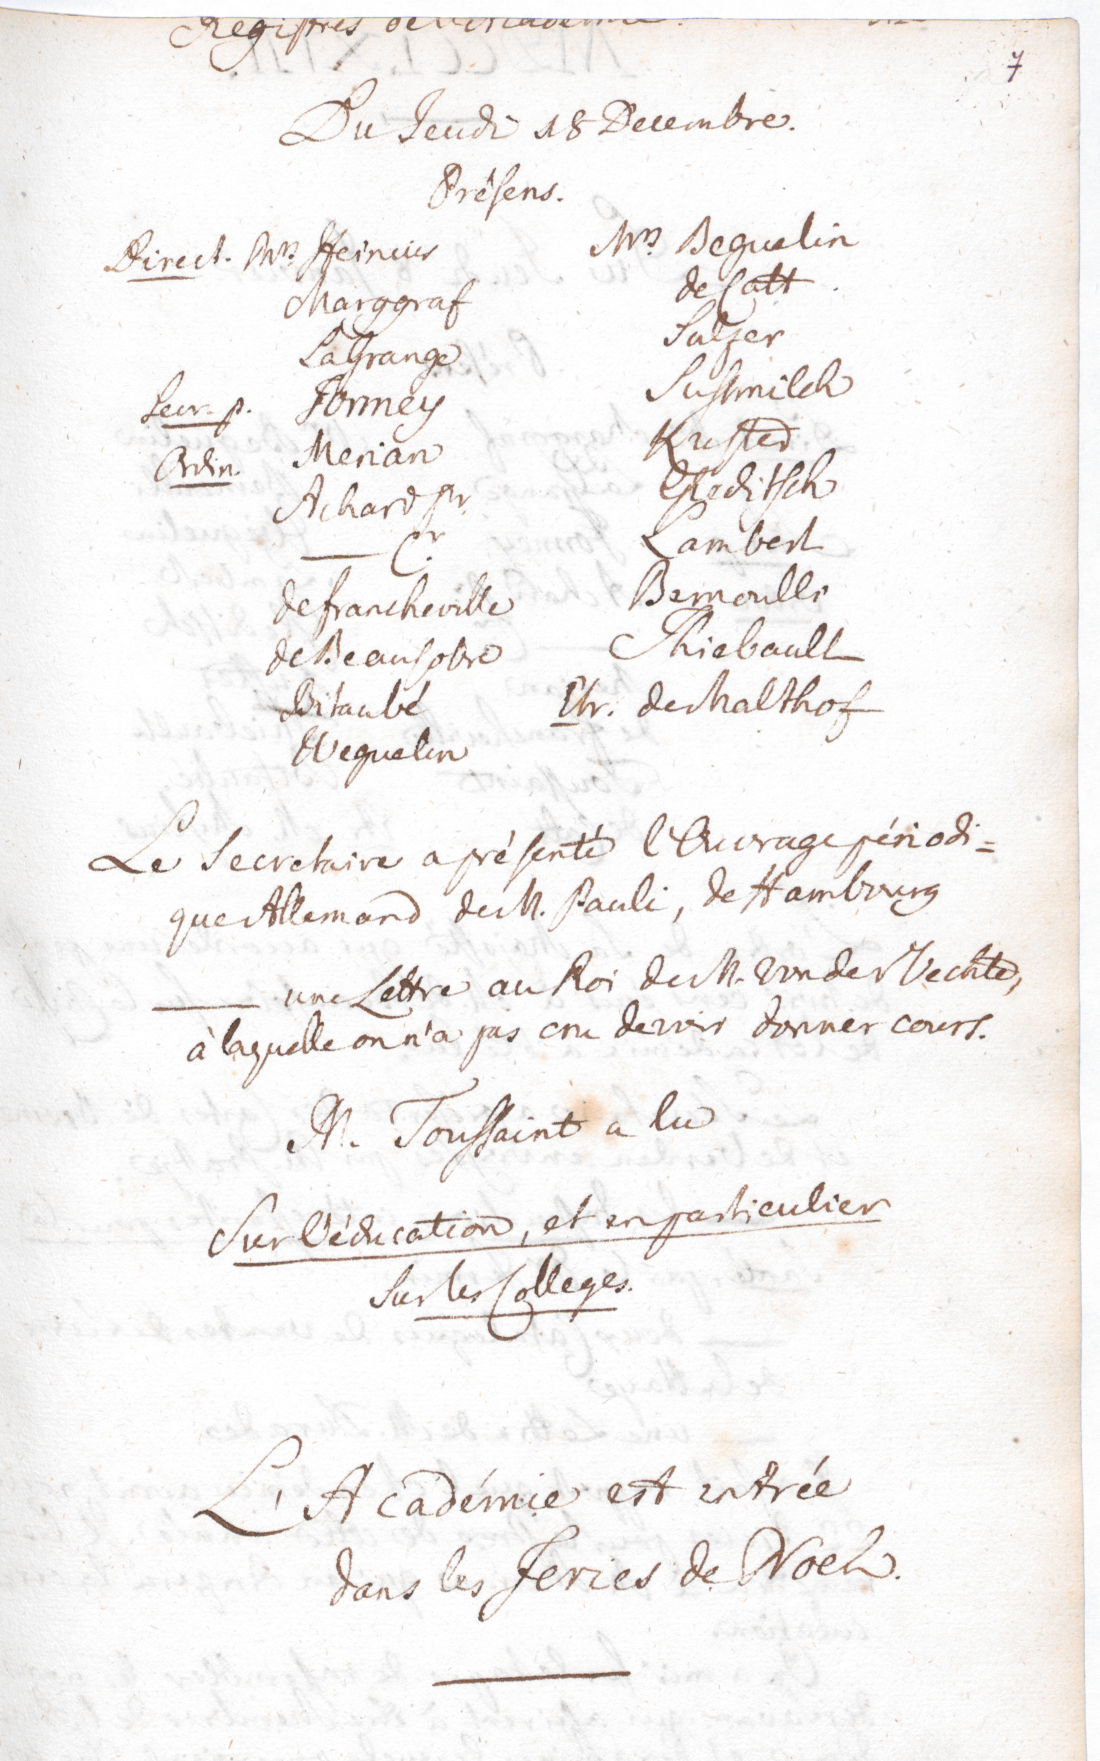 Registres de l'Académie.
7
Du Jeudi 18 Decembre.
Présens.
Direct. Mrs. Heinius
Marggraf
LaGrange
Secr. p. Formey
Ordin. Merian
Achard pr.
—— Cr.
de francheville
de Beausobre
Bitaubé
Weguelin
Mrs Beguelin
de Catt
Sulzer
Sussmilch
Kusted
Gleditsch
Lambert
Bernoulli
Thiebault
Etr. de Malthof
Le Secretaire a présenté l'Ouvrage périodi=
que Allemand de M. Pauli, de Hambourg
—— une Lettre au Roi de M. von der Vechte,
à laquelle on n'a pas cru devoir donner cours.
M. Toussaint a lu
Sur l'éducation, et en particulier
Sur les Colleges.
L'Académie est entrée
dans les feries de Noel.